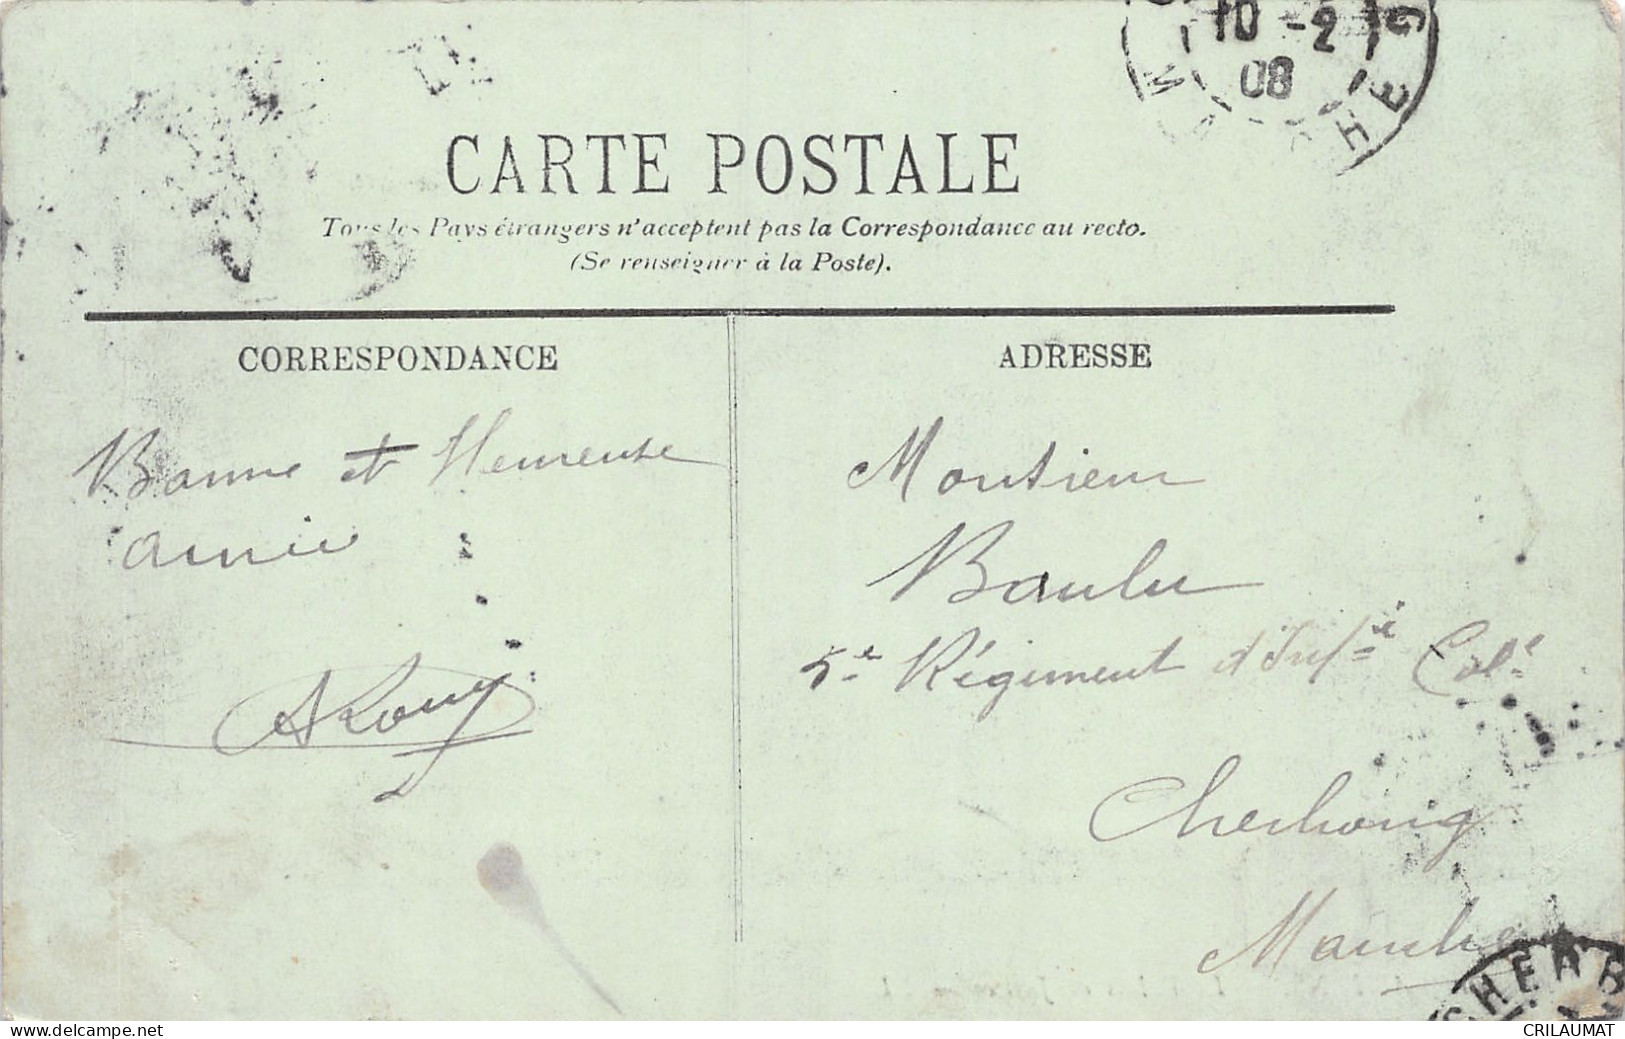 10 -2
08
MANCHE
CARTE POSTALE
Tous les Pays étrangers n'acceptent pas la Correspondance au recto.
(Se renseigner à la Poste).
CORRESPONDANCE
Bonne et Heureuse
année
ADRESSE
Monsieur
Baulu
5e Régiment d'Infie Cole
Cherbourg
Manche
CHERB
www.delcampe.net
CRILAUMAT